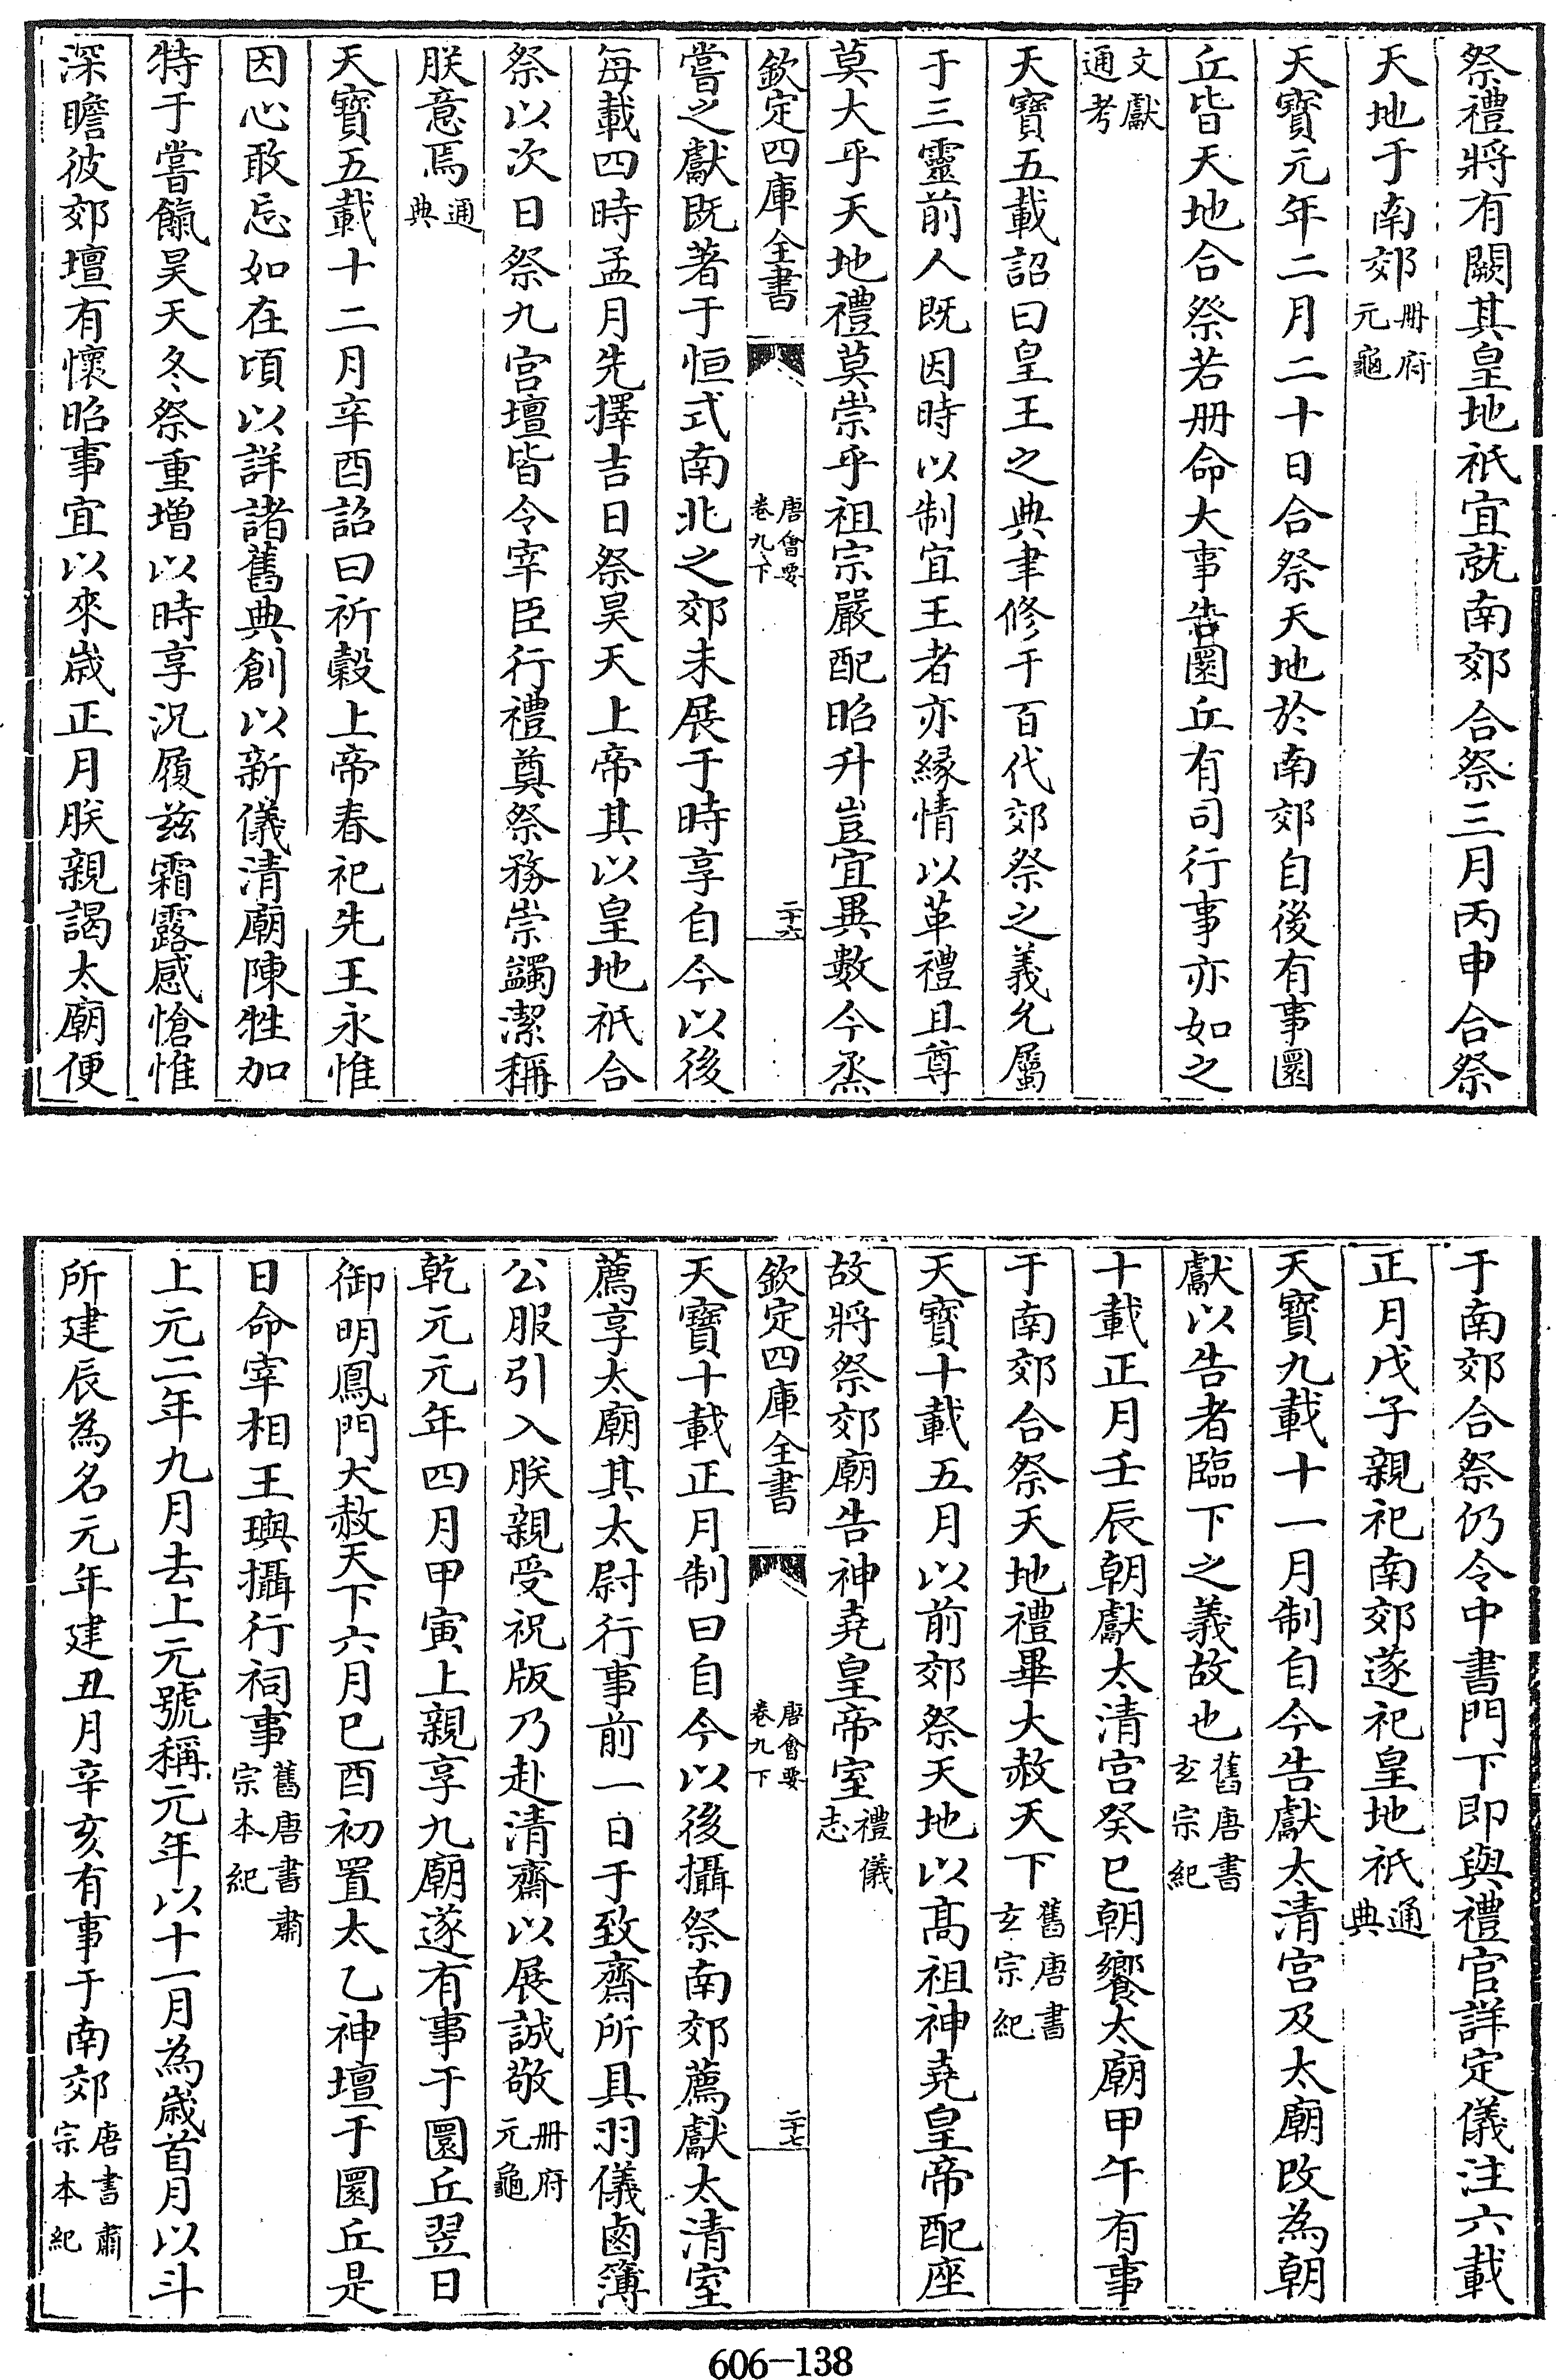 祭禮將有闕其皇地祇宜就南郊合祭三月丙申合祭
天地于南郊冊府元龜
天寶元年二月二十日合祭天地於南郊自後有事圜
丘皆天地合祭若冊命大事告圜丘有司行事亦如之
文獻通考
天寶五載詔曰皇王之典聿修于百代郊祭之義允屬
于三靈前人既因時以制宜王者亦緣情以革禮且尊
莫大乎天地禮莫崇乎祖宗嚴配昭升豈宜異數今烝
欽定四庫全書 唐會要卷九下 二十六
嘗之獻既著于恒式南北之郊未展于時享自今以後
每載四時孟月先擇吉日祭昊天上帝其以皇地祇合
祭以次日祭九宮壇皆令宰臣行禮奠祭務崇蠲潔稱
朕意焉通典
天寶五載十二月辛酉詔曰祈穀上帝春祀先王永惟
因心敢忘如在頃以詳諸舊典創以新儀清廟陳牲加
特于嘗餼昊天冬祭重增以時享況履茲霜露感愴惟
深瞻彼郊壇有懷昭事宜以來歲正月朕親謁太廟便
于南郊合祭仍令中書門下即與禮官詳定儀注六載
正月戊子親祀南郊遂祀皇地祇通典
天寶九載十一月制自今告獻太清宮及太廟改為朝
獻以告者臨下之義故也舊唐書玄宗紀
十載正月壬辰朝獻太清宮癸巳朝饗太廟甲午有事
于南郊合祭天地禮畢大赦天下舊唐書玄宗紀
天寶十載五月以前郊祭天地以高祖神堯皇帝配座
故將祭郊廟告神堯皇帝室禮儀志
欽定四庫全書 唐會要卷九下 二十七
天寶十載正月制曰自今以後攝祭南郊薦獻太清室
薦享太廟其太尉行事前一日于致齋所具羽儀鹵簿
公服引入朕親受祝版乃赴清齋以展誠敬冊府元龜
乾元元年四月甲寅上親享九廟遂有事于圜丘翌日
御明鳳門大赦天下六月己酉初置太乙神壇于圜丘是
日命宰相王璵攝行祠事舊唐書肅宗本紀
上元二年九月去上元號稱元年以十一月為歲首月以斗
所建辰為名元年建丑月辛亥有事于南郊唐書肅宗本紀
606-138